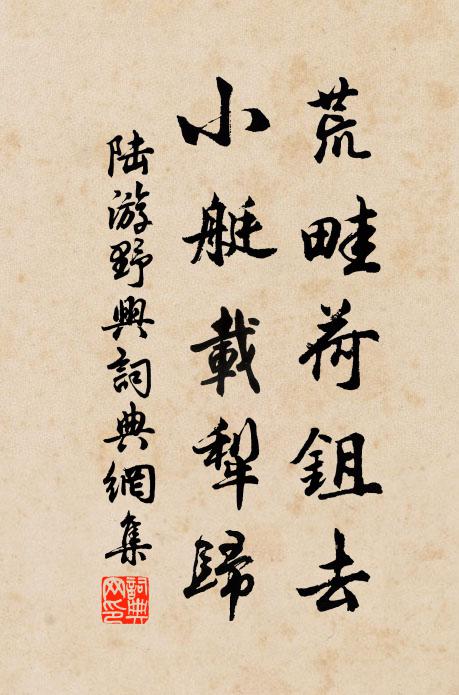 荒畦荷鉏去
小艇載犁歸
陆游野興詞典網集
詞典
网印